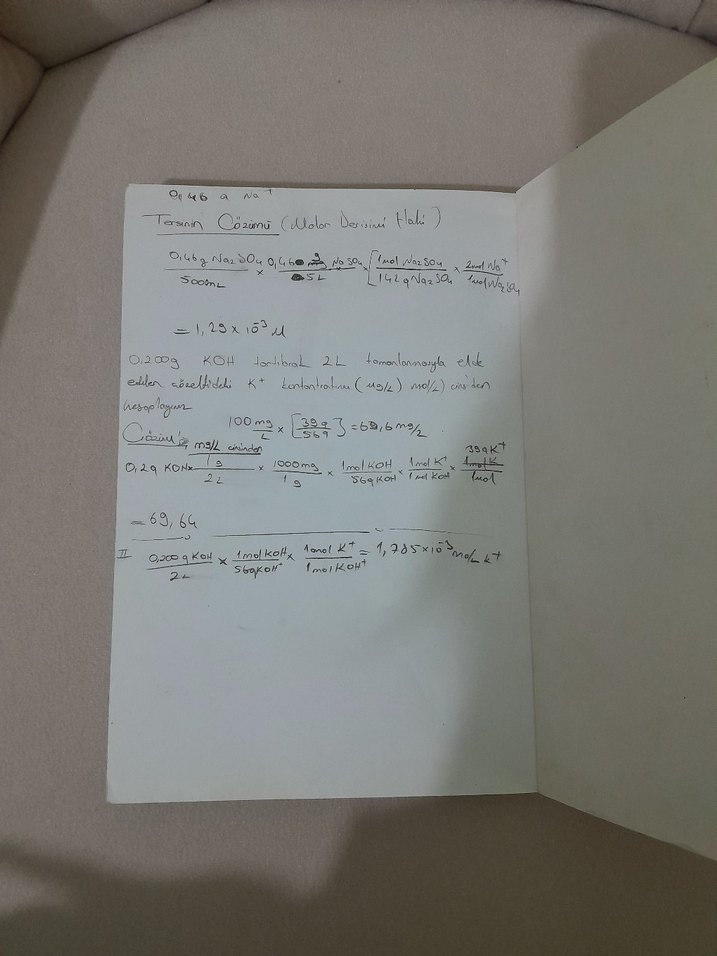 0,46 g Na+
Tersinin Çözümü (Molar Derişimi Hali)
0,46g Na2SO4 / 500mL × 0,46 g Na SO4 / 5L × [1mol Na2SO4 / 142g Na2SO4 × 2mol Na+ / 1mol Na2SO4
= 1,29 × 10^-3 M
0,200g KOH tartılarak 2L tamamlanmasıyla elde
edilen çözeltideki K+ kontantratını (mg/L) mol/L) cinsinden
hesaplayınız
100 mg / L × [39g / 56g] = 69,6 mg/L
Çözüm: mg/L cinsinden
0,2g KOH × 1g / 2L × 1000mg / 1g × 1mol KOH / 56g KOH × 1mol K+ / 1mol KOH × 39g K+ / 1mol
= 69,64
II 0,200g KOH / 2L × 1mol KOH / 56g KOH+ × 1mol K+ / 1mol KOH+ = 1,785 × 10^-3 mol/L K+